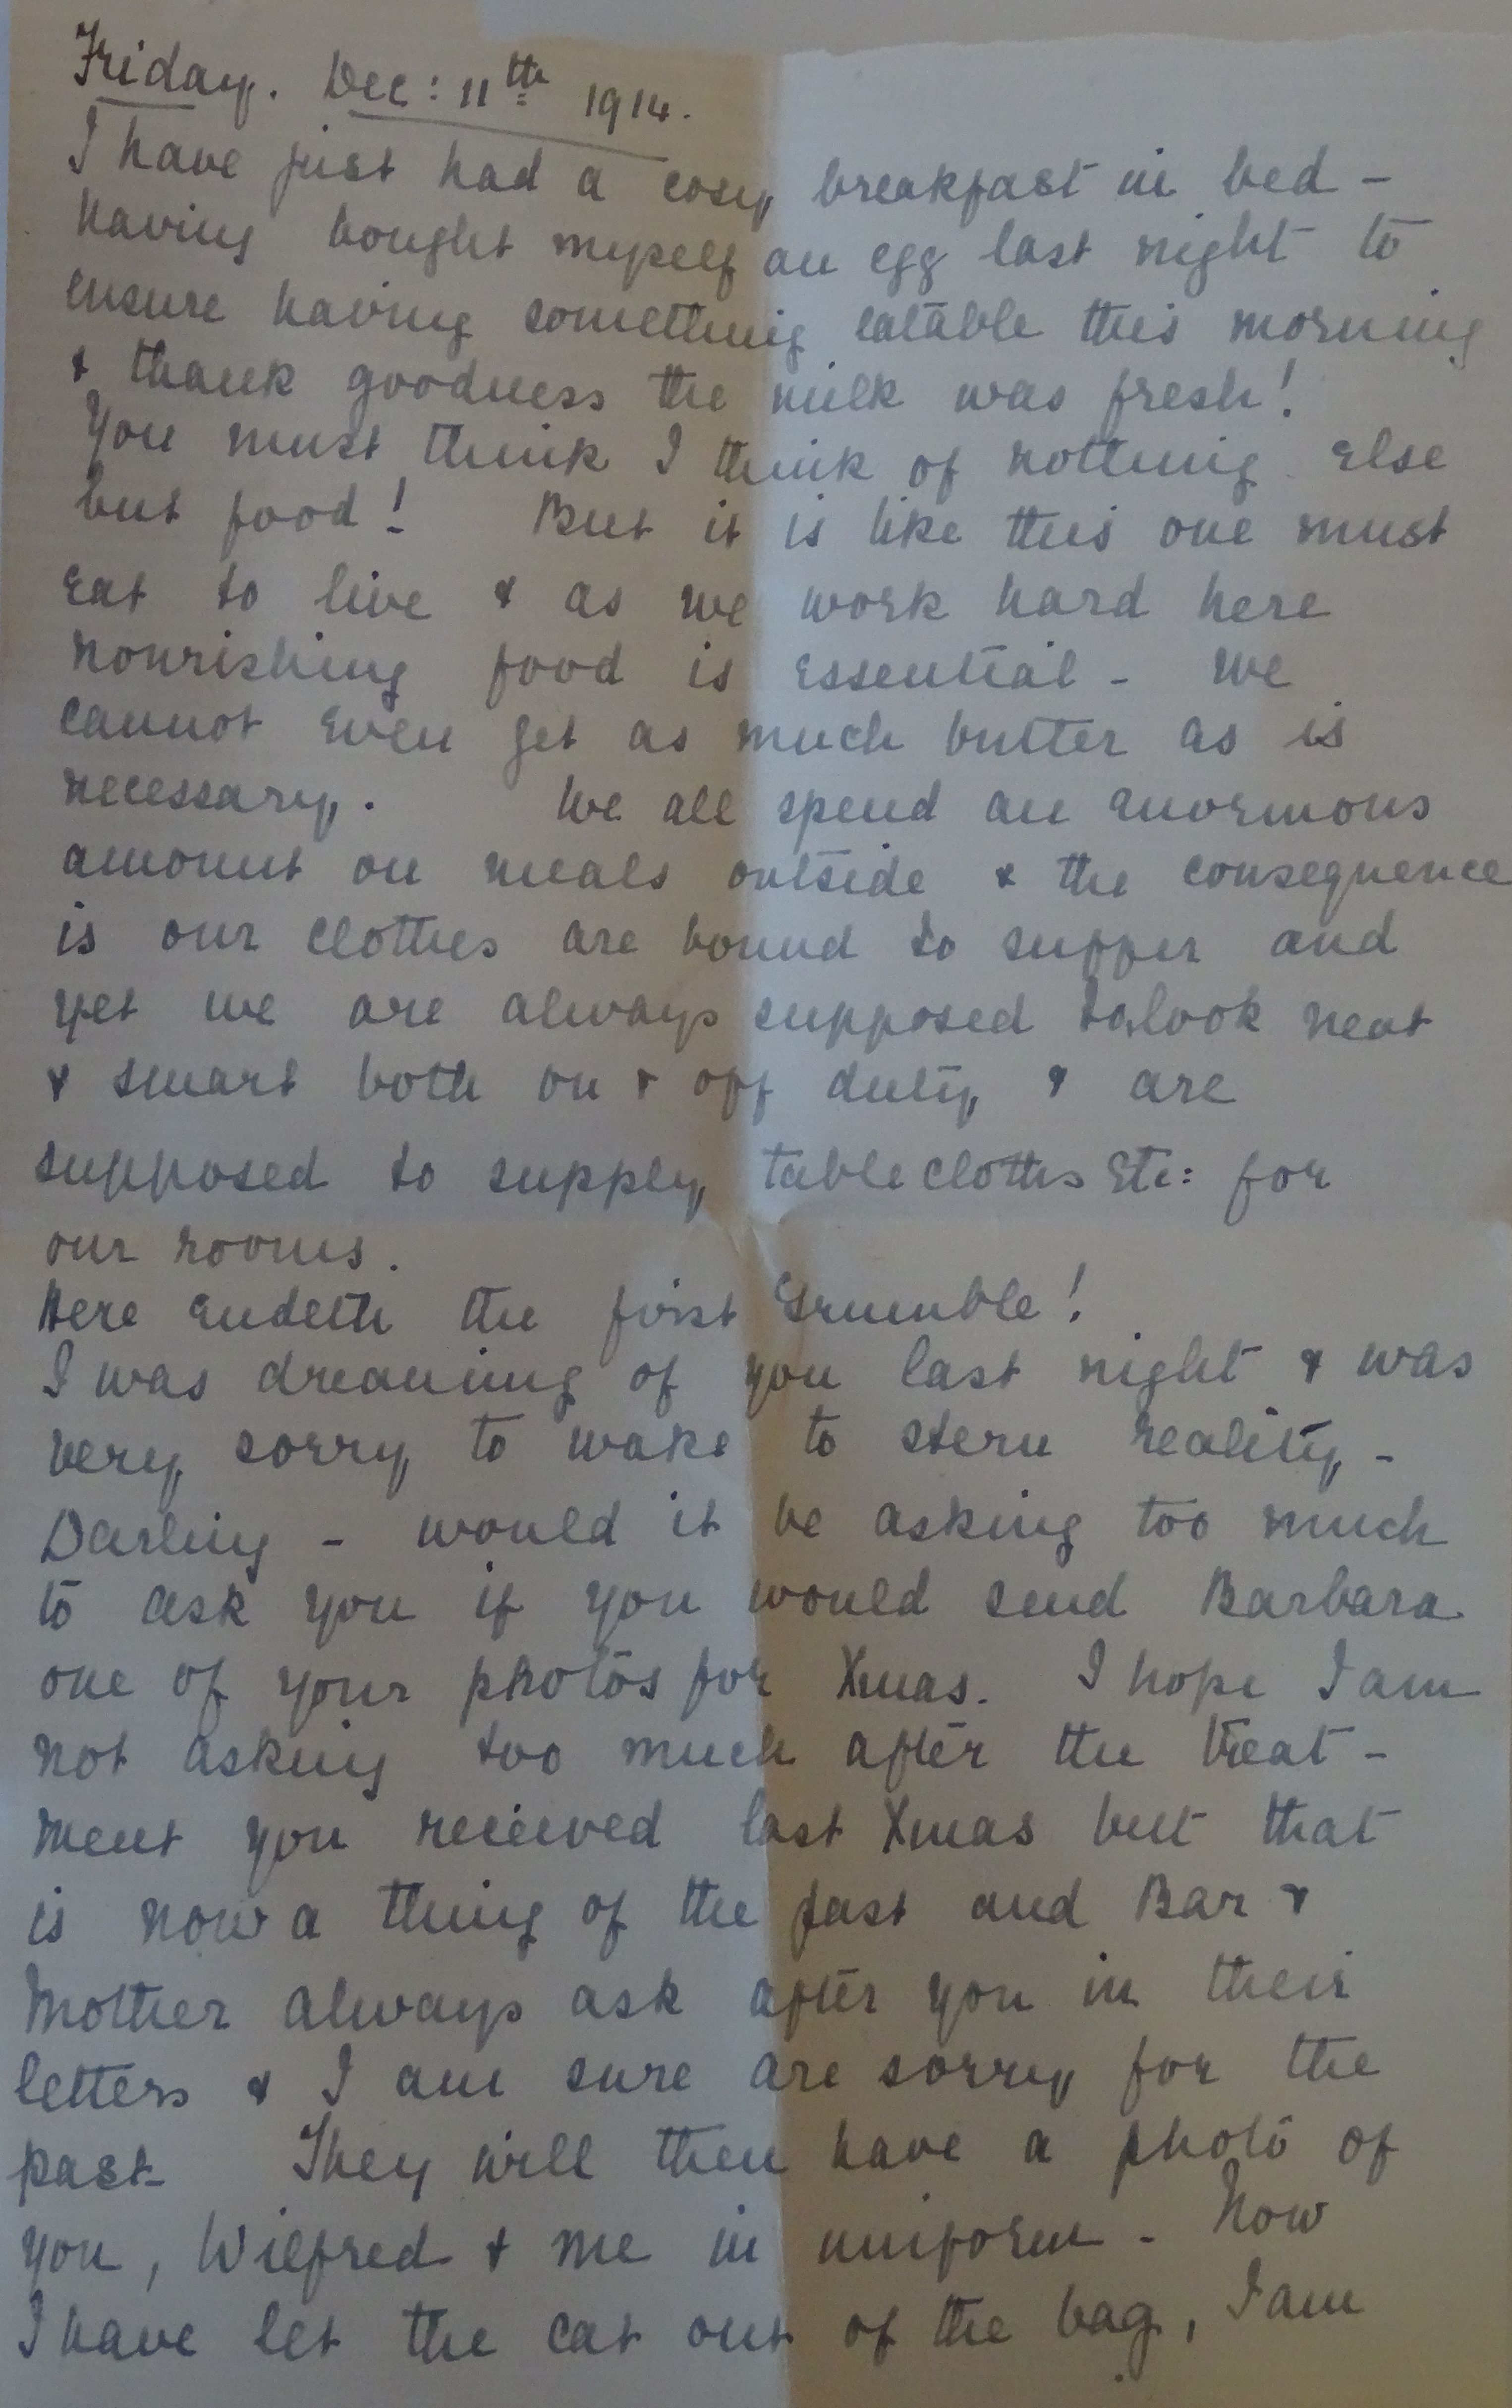 Friday. Dec: 11th 1914.
I have just had a cosy breakfast in bed -
having bought myself an egg last night to
ensure having something eatable this morning
& thank goodness the milk was fresh!
You must think I think of nothing else
but food! But it is like this one must
eat to live & as we work hard here
nourishing food is essential - We
cannot even get as much butter as is
necessary. We all spend an enormous
amount on meals outside & the consequence
is our clothes are bound to suffer and
yet we are always supposed to look neat
& smart both on & off duty & are
supposed to supply tablecloths etc: for
our rooms.
Here endeth the first Grumble!
I was dreaming of you last night & was
very sorry to wake to stern reality -
Darling - would it be asking too much
to ask you if you would send Barbara
one of your photos for Xmas. I hope I am
not asking too much after the treat-
ment you received last Xmas but that
is now a thing of the past and Bar &
Mother always ask after you in their
letters & I am sure are sorry for the
past - They will then have a photo of
you, Wilfred & me in uniform - Now
I have let the cat out of the bag, I am